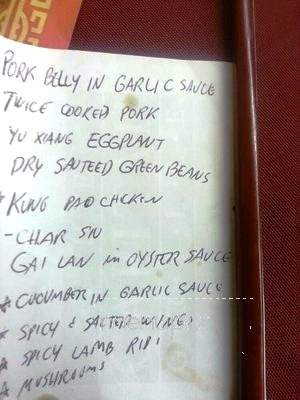 PORK BELLY IN GARLIC SAUCE
TWICE COOKED PORK
YU XIANG EGGPLANT
DRY SAUTEED GREEN BEANS
* KUNG PAO CHCKEN
- CHAR SIU
GAI LAN in OYSTER SAUCE
* CUCUMBER IN GARLIC SAUCE
* SPICY & SALTED WINGS
* SPICY LAMB RIBS
* MUSHROOMS